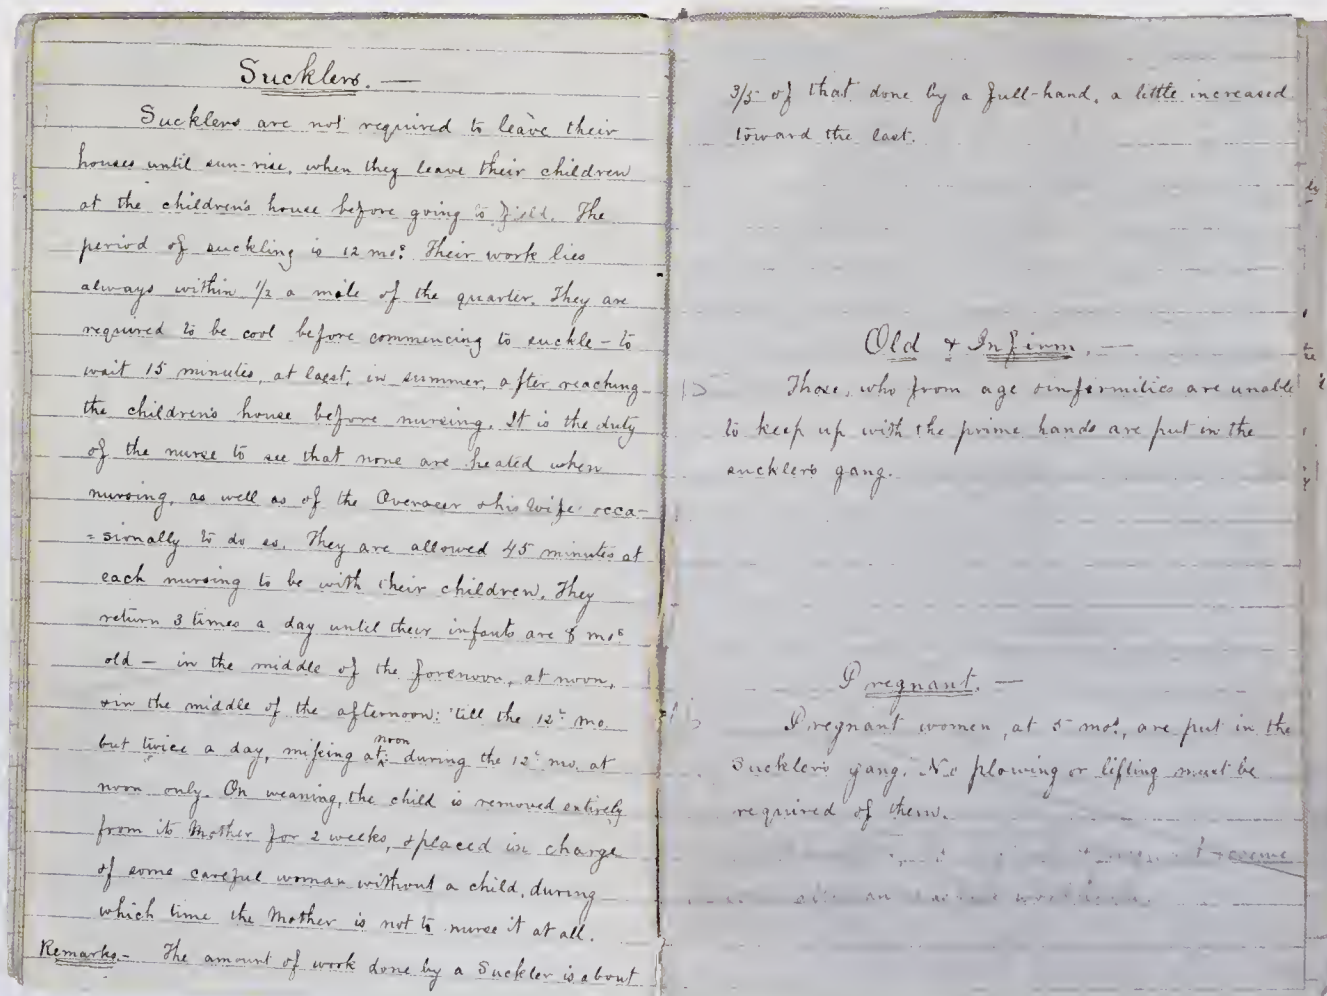 Sucklers. —
Sucklers are not required to leave their
houses until sun-rise, when they leave their children
at the children's house before going to field. The
period of suckling is 12 mos. Their work lies
always within 1/2 a mile of the quarter. They are
required to be cool before commencing to suckle – to
wait 15 minutes, at least, in summer, after reaching
the children's house before nursing. It is the duty
of the nurse to see that none are heated when
nursing, as well as of the Overseer & his wife occa-
=sionally to do so. They are allowed 45 minutes at
each nursing to be with their children. They
return 3 times a day until their infants are 8 mos
old – in the middle of the forenoon, at noon,
& in the middle of the afternoon: 'till the 12th mo.
but twice a day, missing at noon: during the 12th mo. at
noon only. On weaning, the child is removed entirely
from its Mother for 2 weeks, & placed in charge
of some careful woman without a child, during
which time the Mother is not to nurse it at all.
Remarks.– The amount of work done by a Suckler is about
3/5 of that done by a full-hand, a little increased
toward the last.
Old & Infirm. —
Those, who from age & infirmities are unable
to keep up with the prime hands are put in the
sucklers gang.
Pregnant. —
Pregnant women, at 5 mos, are put in the
Sucklers gang. No plowing or lifting must be
required of them.